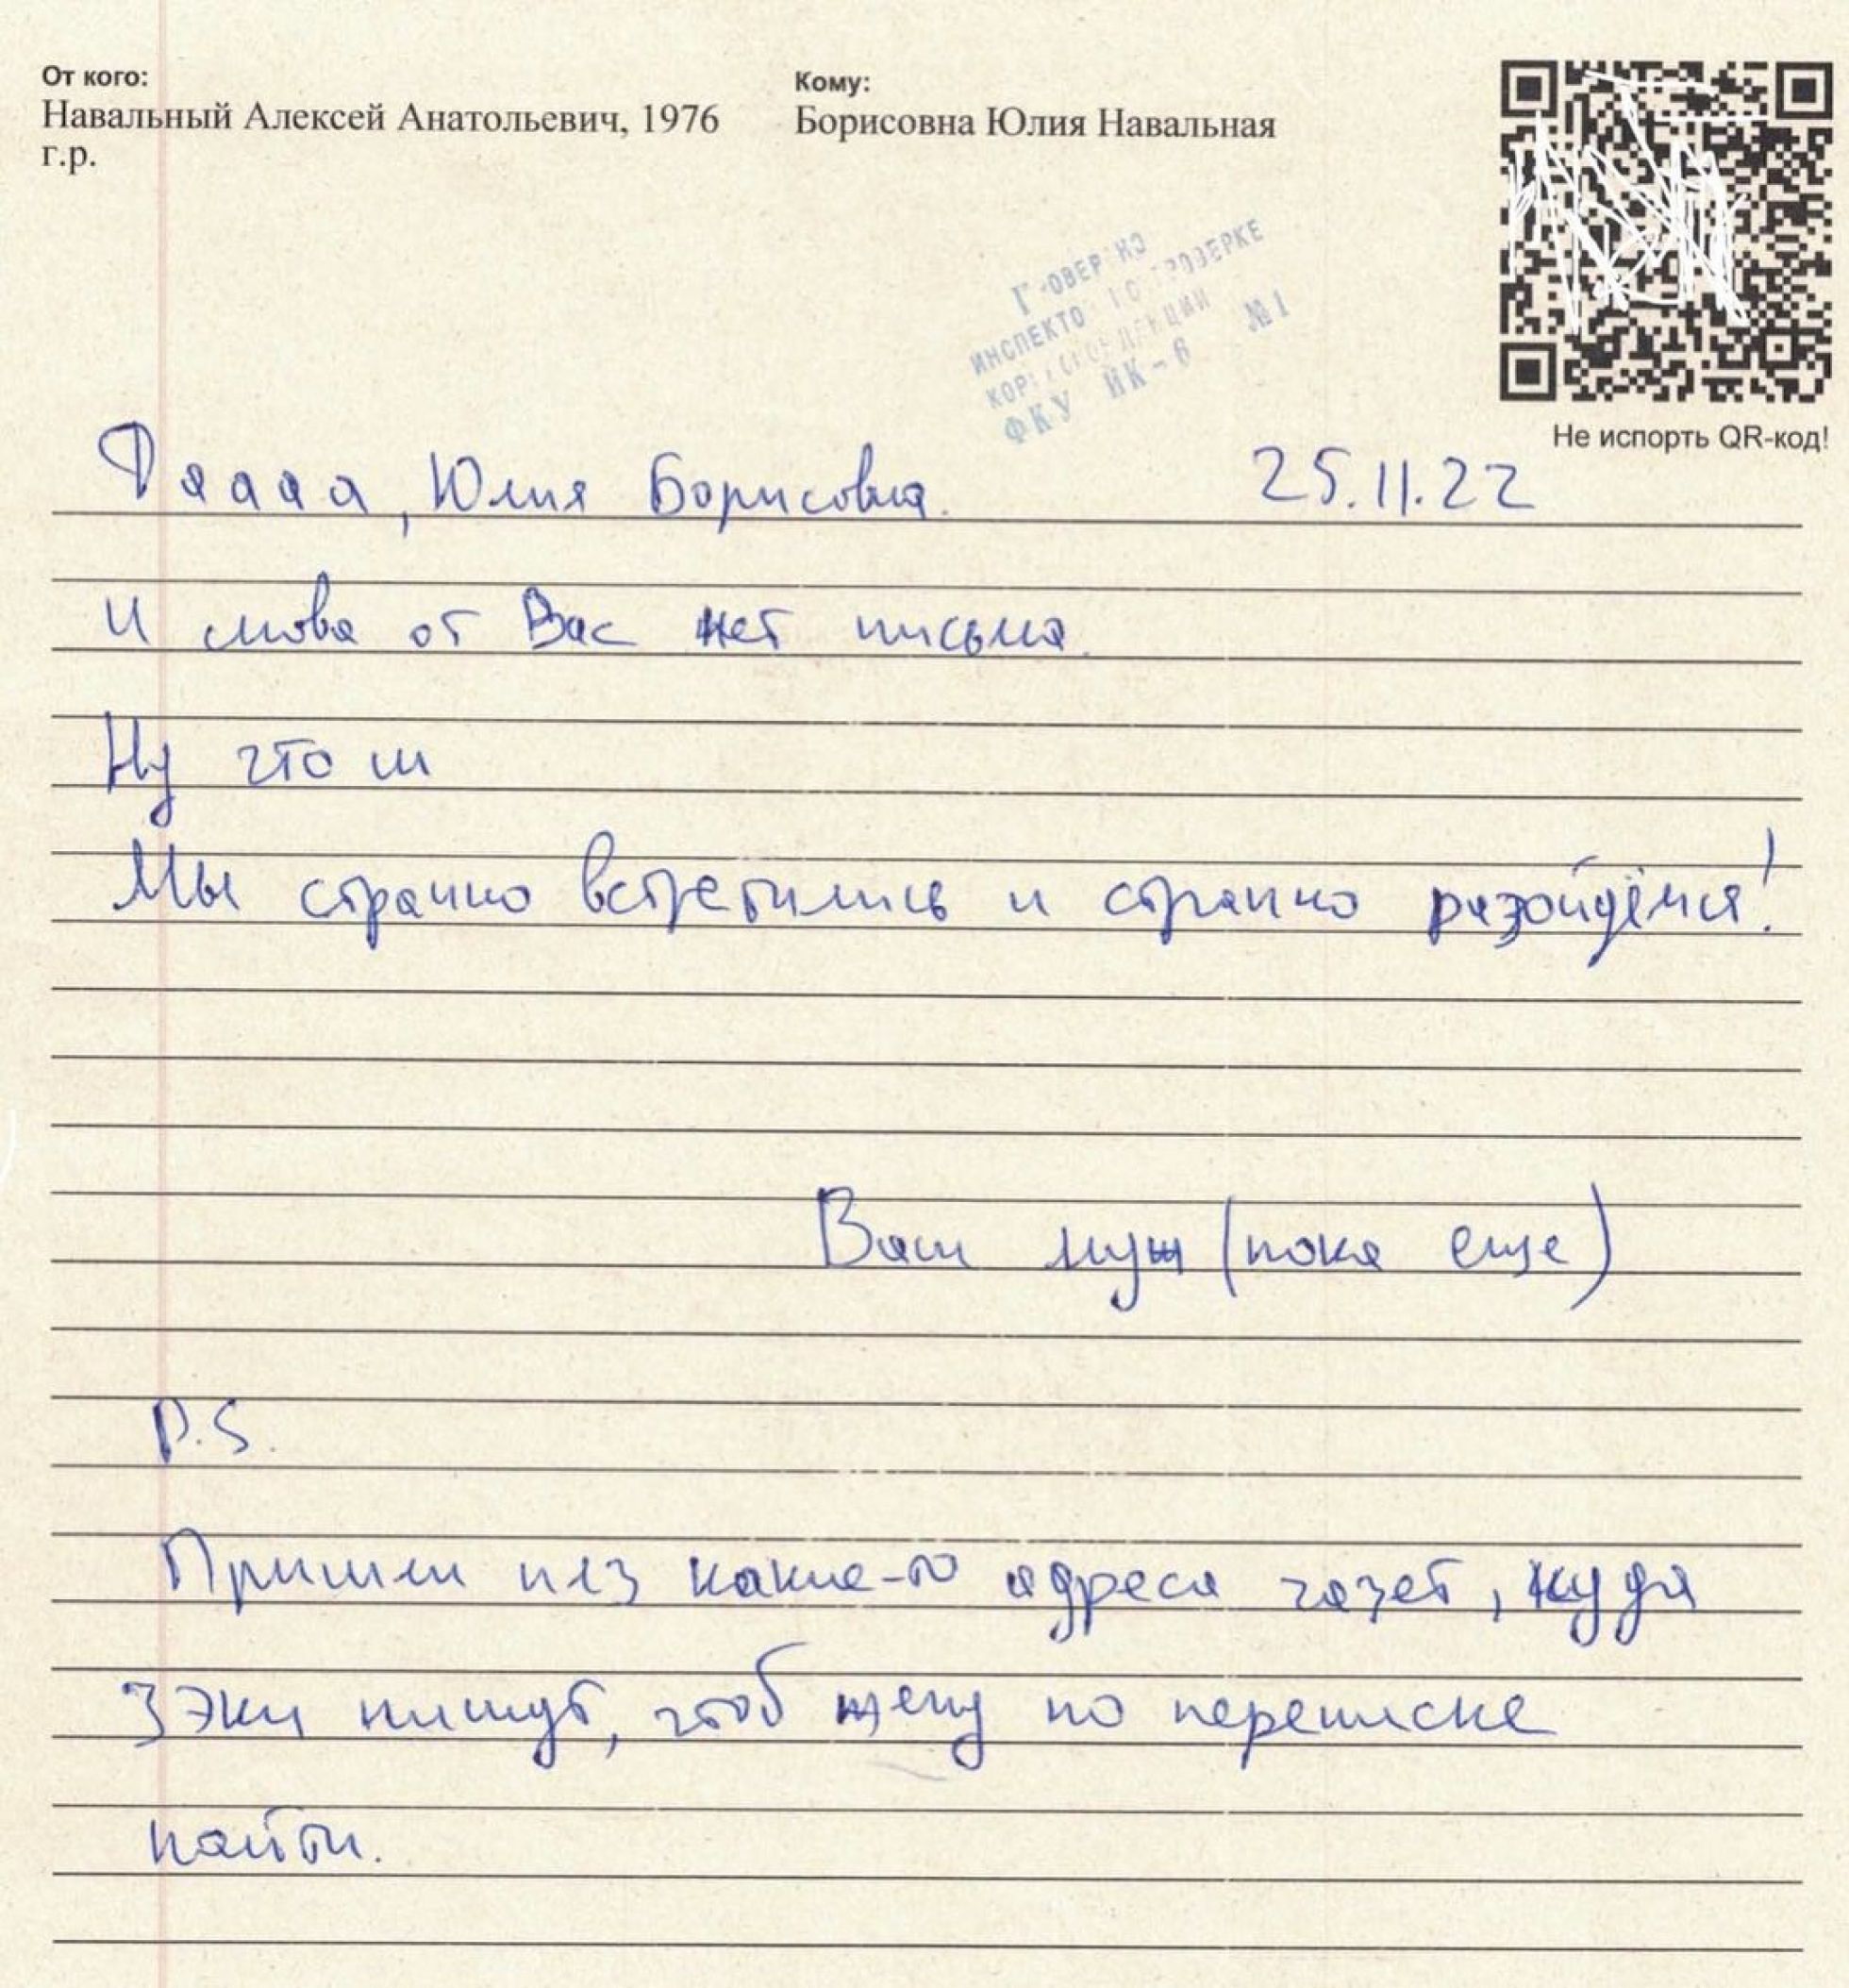 От кого:
Навальный Алексей Анатольевич, 1976
г.р.
Кому:
Борисовна Юлия Навальная
ИНСПЕКТО
ФКУ ИК-6 №1
Не испорть QR-код!
Даааа, Юлия Борисовна. 25.11.22
И снова от Вас нет письма.
Ну что ж
Мы странно встретились и странно разойдёмся!
Ваш муж (пока еще)
P.S.
Пришли плз какие-то адреса газет, куда
зэки пишут, чтоб жену по переписке
найти.